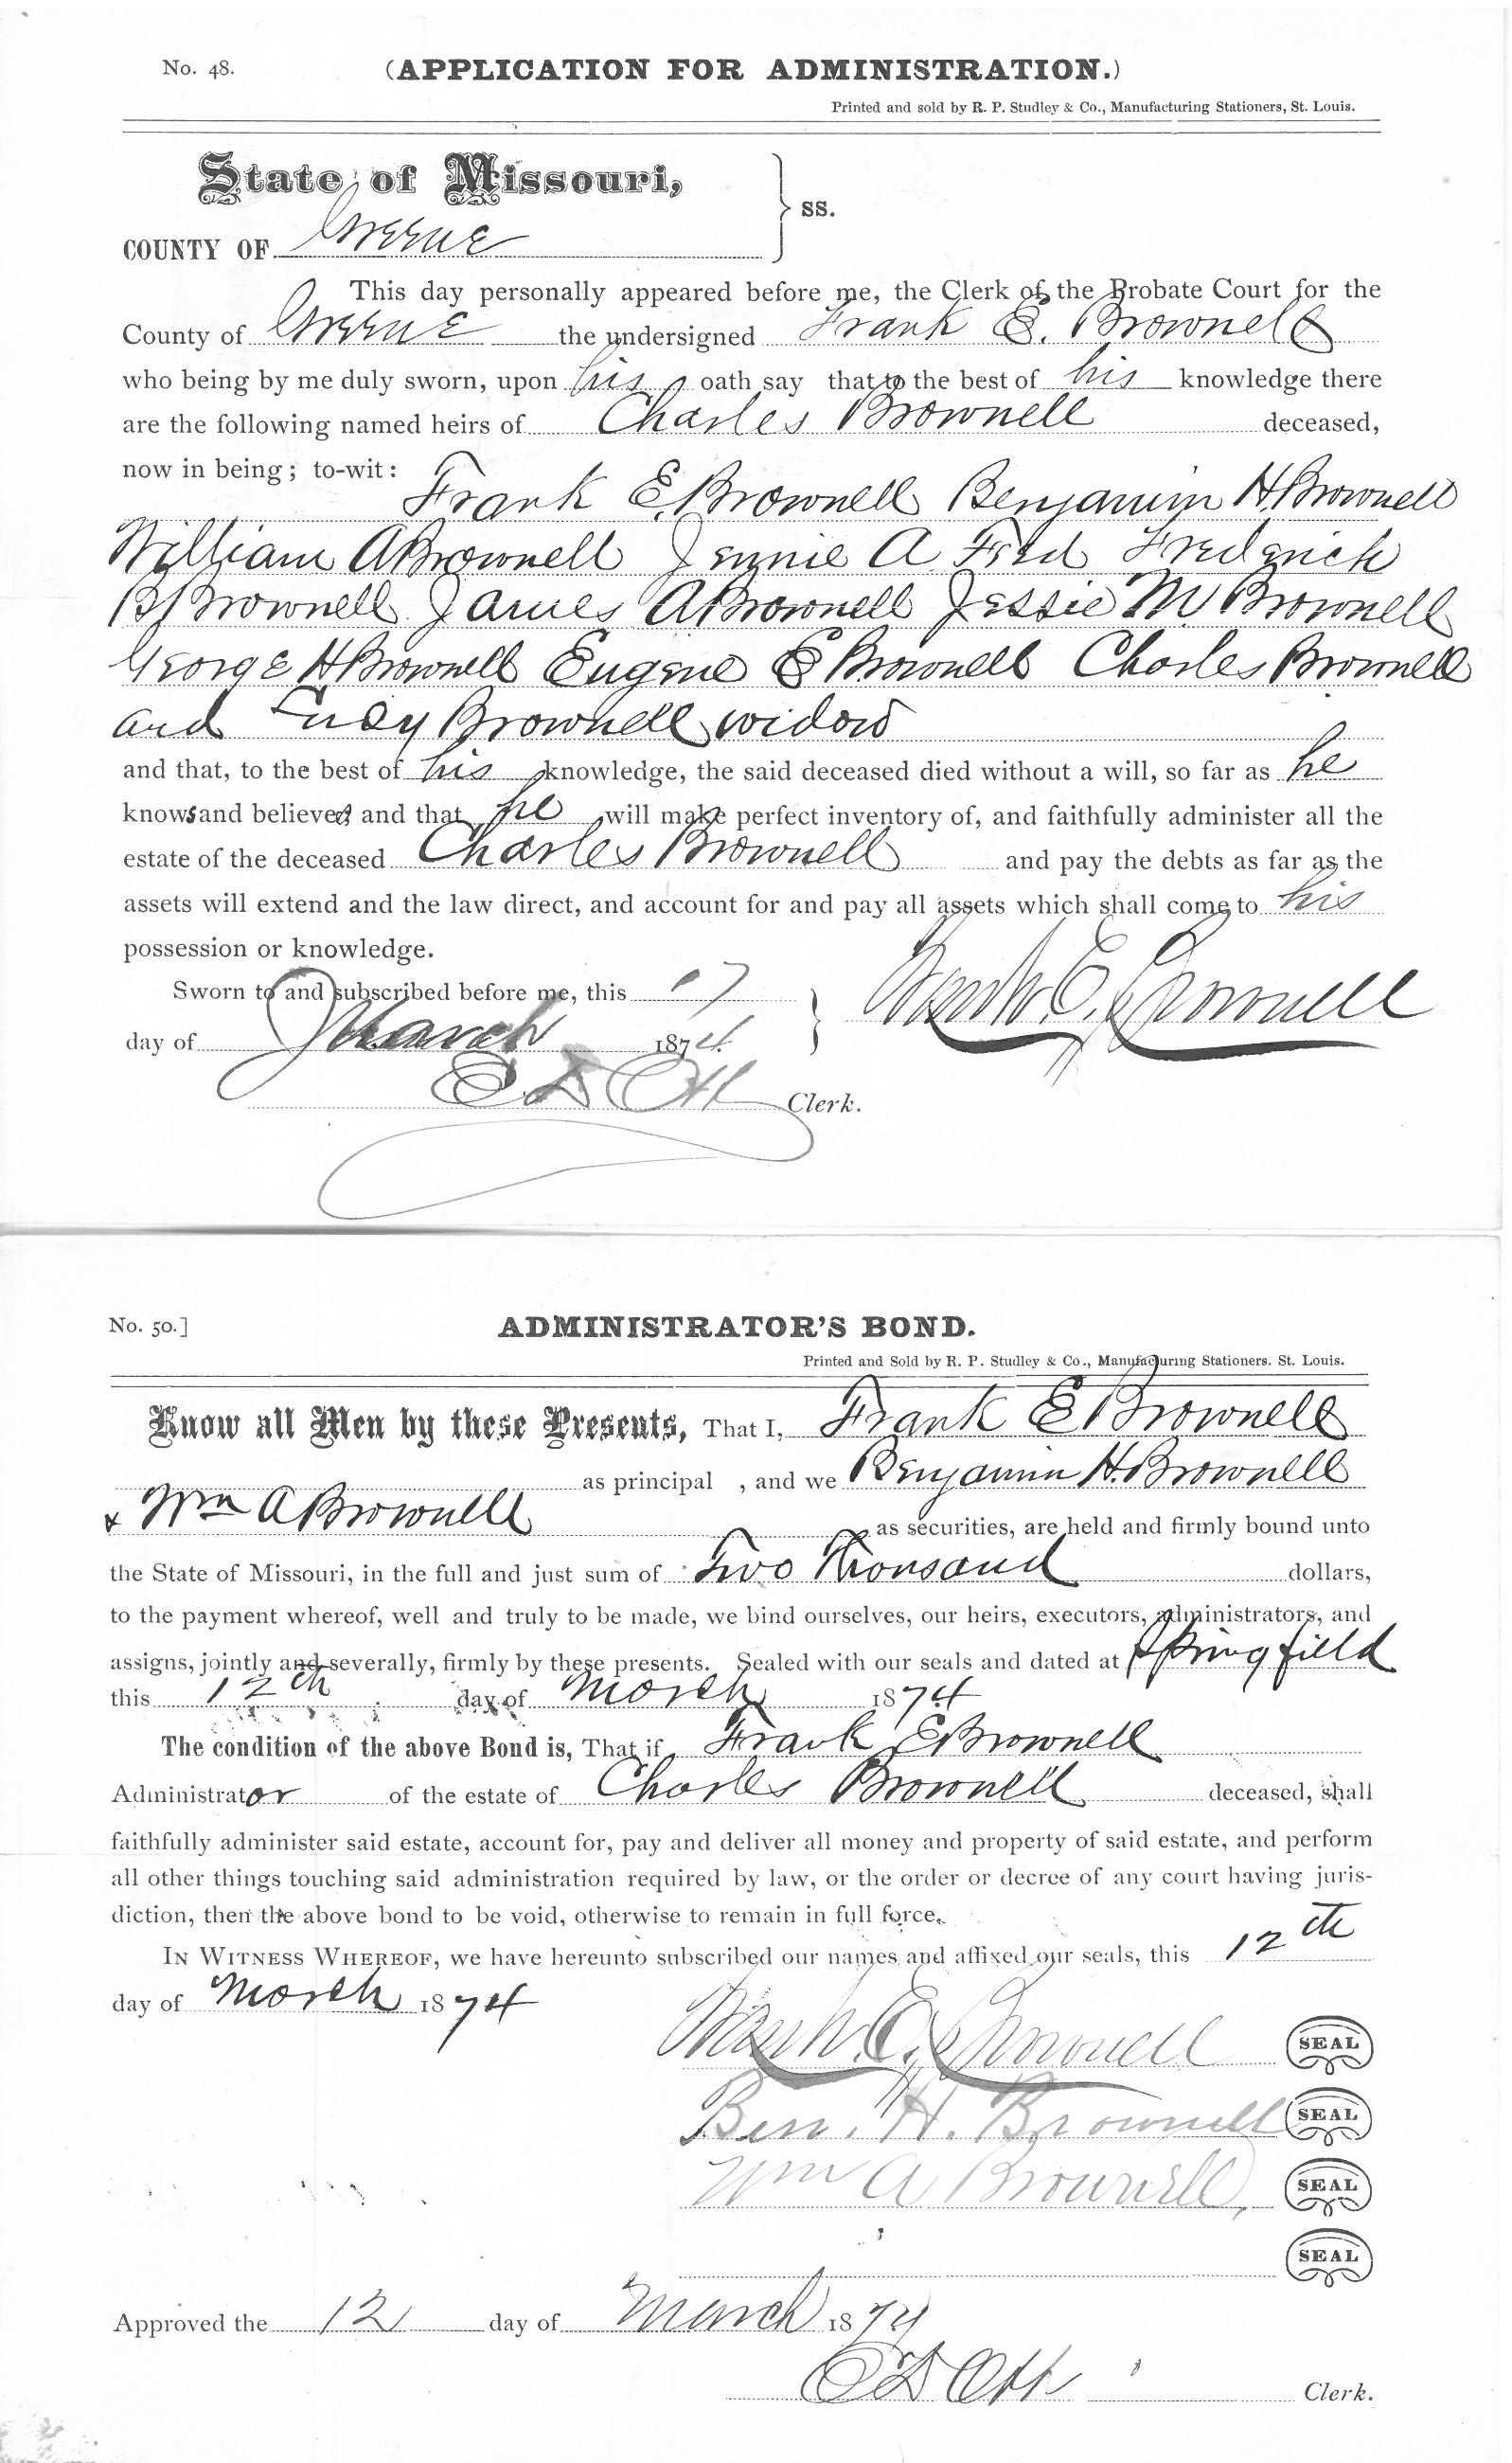 No. 48.
(APPLICATION FOR ADMINISTRATION.)
Printed and sold by R. P. Studley & Co., Manufacturing Stationers, St. Louis.
State of Missouri,
ss.
COUNTY OF Greene
This day personally appeared before me, the Clerk of the Probate Court for the
County of Greene the undersigned Frank E. Brownell
who being by me duly sworn, upon his oath say that to the best of his knowledge there
are the following named heirs of Charles Brownell deceased,
now in being; to-wit: Frank E. Brownell Benjamin H. Brownell
William A Brownell Jennie A. Frederick
B Brownell James A Brownell Jessie M Brownell
George H Brownell Eugene E Brownell Charles Brownell
and Lucy Brownell widow
and that, to the best of his knowledge, the said deceased died without a will, so far as he
knows and believes and that he will make perfect inventory of, and faithfully administer all the
estate of the deceased Charles Brownell and pay the debts as far as the
assets will extend and the law direct, and account for and pay all assets which shall come to his
possession or knowledge.
Sworn to and subscribed before me, this
Frank E. Brownell
day of March 1874
E D Ott Clerk.
No. 50.]
ADMINISTRATOR'S BOND.
Printed and Sold by R. P. Studley & Co., Manufacturing Stationers. St. Louis.
Know all Men by these Presents, That I, Frank E Brownell
as principal , and we Benjamin H. Brownell
& Wm A Brownell as securities, are held and firmly bound unto
the State of Missouri, in the full and just sum of Two Thousand dollars,
to the payment whereof, well and truly to be made, we bind ourselves, our heirs, executors, administrators, and
assigns, jointly and severally, firmly by these presents. Sealed with our seals and dated at Springfield
this 12th day of March 1874
The condition of the above Bond is, That if Frank E Brownell
Administrator of the estate of Charles Brownell deceased, shall
faithfully administer said estate, account for, pay and deliver all money and property of said estate, and perform
all other things touching said administration required by law, or the order or decree of any court having juris-
diction, then the above bond to be void, otherwise to remain in full force.
IN WITNESS WHEREOF, we have hereunto subscribed our names and affixed our seals, this 12th
day of March 1874
Frank E. Brownell SEAL
Ben. H. Brownell SEAL
Wm A Brownell, SEAL
SEAL
Approved the 12 day of March 1874
E D Ott Clerk.